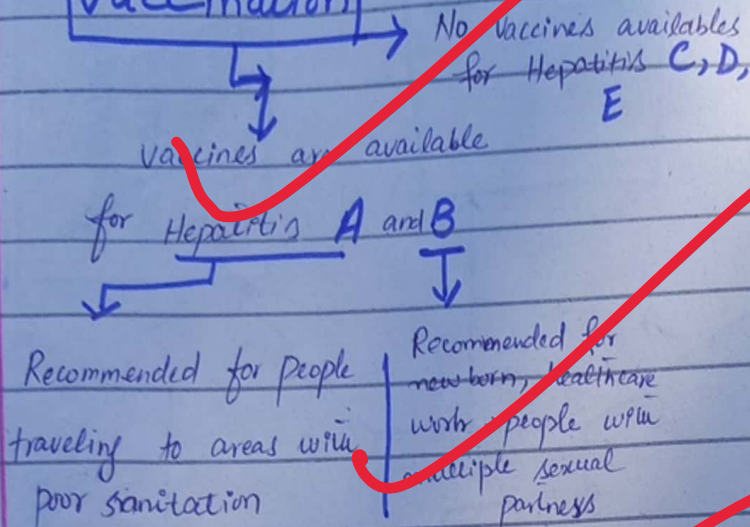 Vaccination
No Vaccines availables
for Hepatitis C, D,
E
Vaccines are available
for Hepatitis A and B
Recommended for people
traveling to areas with
poor sanitation
Recommended for
new born, healthcare
work people with
multiple sexual
partness